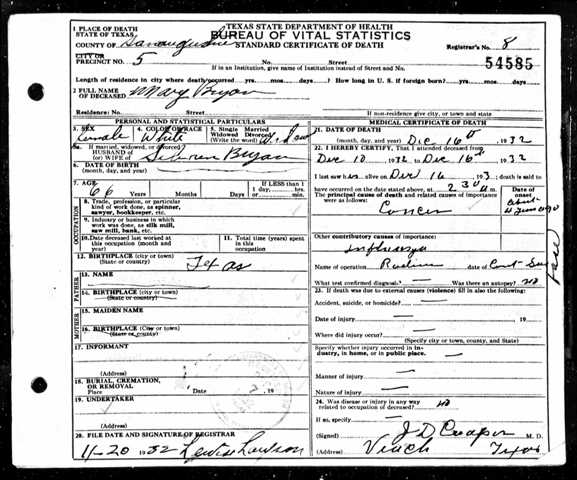 TEXAS STATE DEPARTMENT OF HEALTH
BUREAU OF VITAL STATISTICS
STANDARD CERTIFICATE OF DEATH
1 PLACE OF DEATH
STATE OF TEXAS
COUNTY OF San Augustine
Registrar's No. 8
CITY OR
PRECINCT NO. 5 No. Street
54585
If in an Institution, give name of Institution instead of Street and No.
Length of residence in city where death occurred yrs. mos. days. How long in U. S. if foreign born? yrs. mos. days.
2 FULL NAME
OF DECEASED Mary Bryan
Residence: No. Street
If nonresident give city or town and state
PERSONAL AND STATISTICAL PARTICULARS
3. SEX Female
4. COLOR OR RACE White
5. Single Married
Widowed Divorced
(Write the word)
5a. If married, widowed, or divorced
HUSBAND OF
(or) WIFE OF Bryan
6. DATE OF BIRTH
(month, day, and year)
7. AGE 66 Years Months Days
If LESS than
1 day, hrs.
or min.
OCCUPATION
8. Trade, profession, or particular
kind of work done, as spinner,
sawyer, bookkeeper, etc.
9. Industry or business in which
work was done, as silk mill,
saw mill, bank, etc.
10. Date deceased last worked at
this occupation (month and
year)
11. Total time (years)
spent in this
occupation
12. BIRTHPLACE (city or town)
(State or country) Texas
FATHER
13. NAME
14. BIRTHPLACE (city or town)
(State or country)
MOTHER
15. MAIDEN NAME
16. BIRTHPLACE (City or town)
(State or country)
17. INFORMANT
(Address)
18. BURIAL, CREMATION,
OR REMOVAL
Place Date 19
19. UNDERTAKER
(Address)
20. FILE DATE AND SIGNATURE OF REGISTRAR
11-20 1932 Lewis Lawson
MEDICAL CERTIFICATE OF DEATH
21. DATE OF DEATH
(month, day, and year) Dec 16th, 1932
22. I HEREBY CERTIFY, That I attended deceased from
Dec 10 1932 to Dec 16th, 1932
I last saw h alive on Dec 16 193 ; death is said to
have occurred on the date stated above, at 2 30 m.
The principal cause of death and related causes of importance
were as follows:
Date of
onset
Cancer
Other contributory causes of importance:
Influenza
Name of operation Radium date of
What test confirmed diagnosis? Was there an autopsy? no
23. If death was due to external causes (violence) fill in also the following:
Accident, suicide, or homicide?
Date of injury 19
Where did injury occur?
(Specify city or town, county, and State)
Specify whether injury occurred in in-
dustry, in home, or in public place.
Manner of injury
Nature of injury
24. Was disease or injury in any way
related to occupation of deceased? no
(Signed) J D M. D.
(Address) Texas